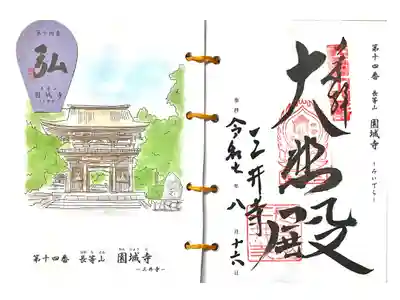 第十四番
弘
園城寺
第十四番 長等山 園城寺
―三井寺―
第十四番 長等山 園城寺
～みいでら～
奉拝
大悲殿
三井寺
参拝 令和七年 八月十六日